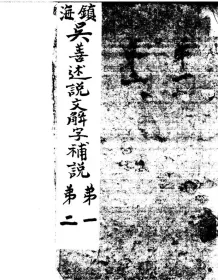 鎮海
吳善述說文解字補說
第一
第二